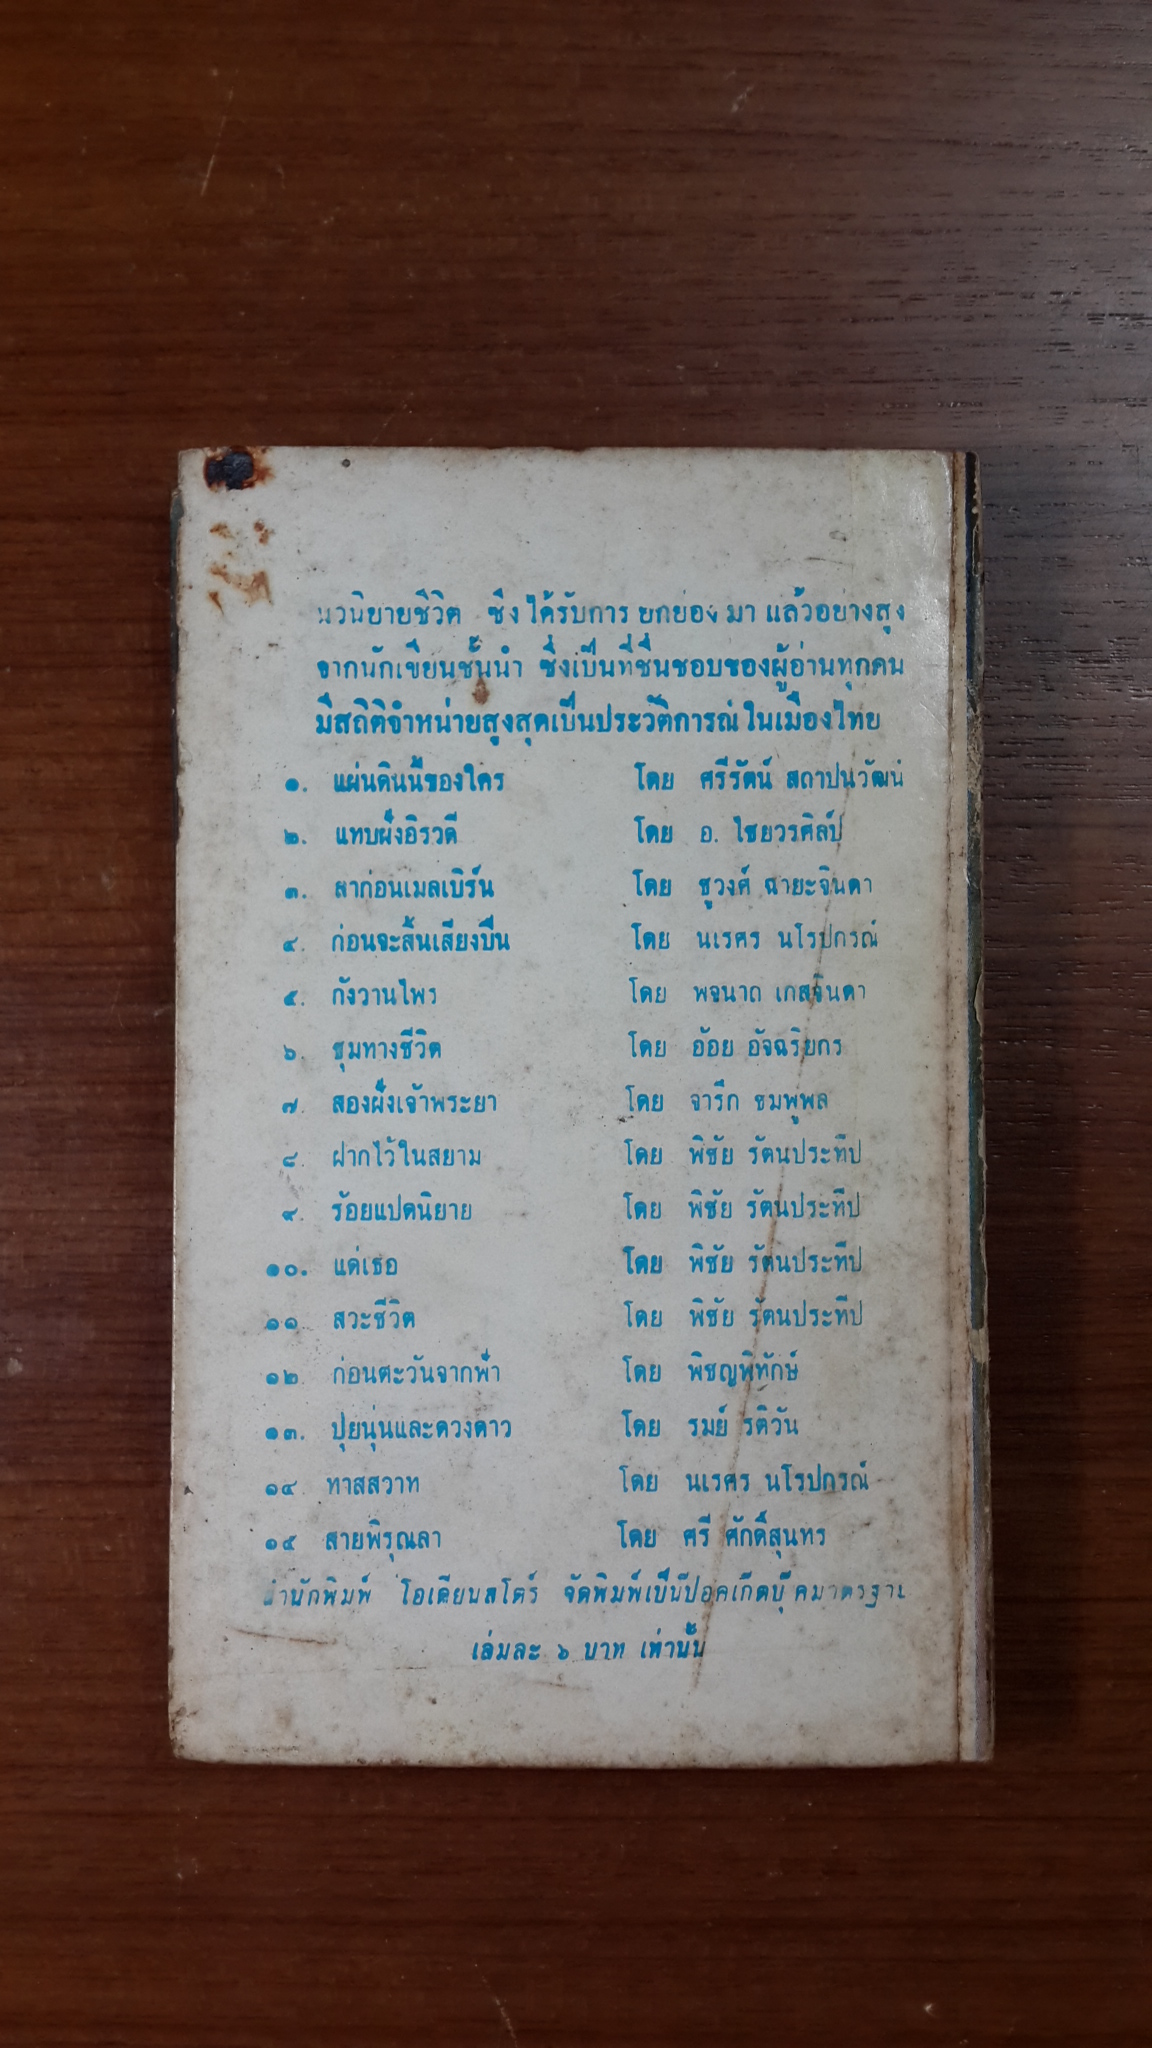 นวนิยายชีวิต ซึ่งได้รับการยกย่องมาแล้วอย่างสูง
จากนักเขียนชั้นนำ ซึ่งเป็นที่ชื่นชอบของผู้อ่านทุกคน
มีสถิติจำหน่ายสูงสุดเป็นประวัติการณ์ในเมืองไทย
๑. แผ่นดินนี้ของใคร โดย ศรีรัตน์ สถาปนวัฒน์
๒. แทบฝั่งอิรวดี โดย อ. ไชยวรศิลป์
๓. ลาก่อนเมลเบิร์น โดย ชูวงศ์ ฉายะจินดา
๔. ก่อนจะสิ้นเสียงปืน โดย นเรศร นโรปกรณ์
๕. กังวานไพร โดย พจนาถ เกสจินดา
๖. ชุมทางชีวิต โดย อ้อย อัจฉริยกร
๗. สองฝั่งเจ้าพระยา โดย จารึก ชมพูพล
๘. ฝากไว้ในสยาม โดย พิชัย รัตนประทีป
๙. ร้อยแปดนิยาย โดย พิชัย รัตนประทีป
๑๐. แด่เธอ โดย พิชัย รัตนประทีป
๑๑. สวะชีวิต โดย พิชัย รัตนประทีป
๑๒. ก่อนตะวันจากฟ้า โดย พิชญพิทักษ์
๑๓. ปุยนุ่นและดวงดาว โดย รมย์ รติวัน
๑๔ ทาสสวาท โดย นเรศร นโรปกรณ์
๑๕ สายพิรุณลา โดย ศรี ศักดิ์สุนทร
สำนักพิมพ์ โอเดียนสโตร์ จัดพิมพ์เป็นปอคเก็ตบุ๊คมาตรฐาน
เล่มละ ๖ บาท เท่านั้น